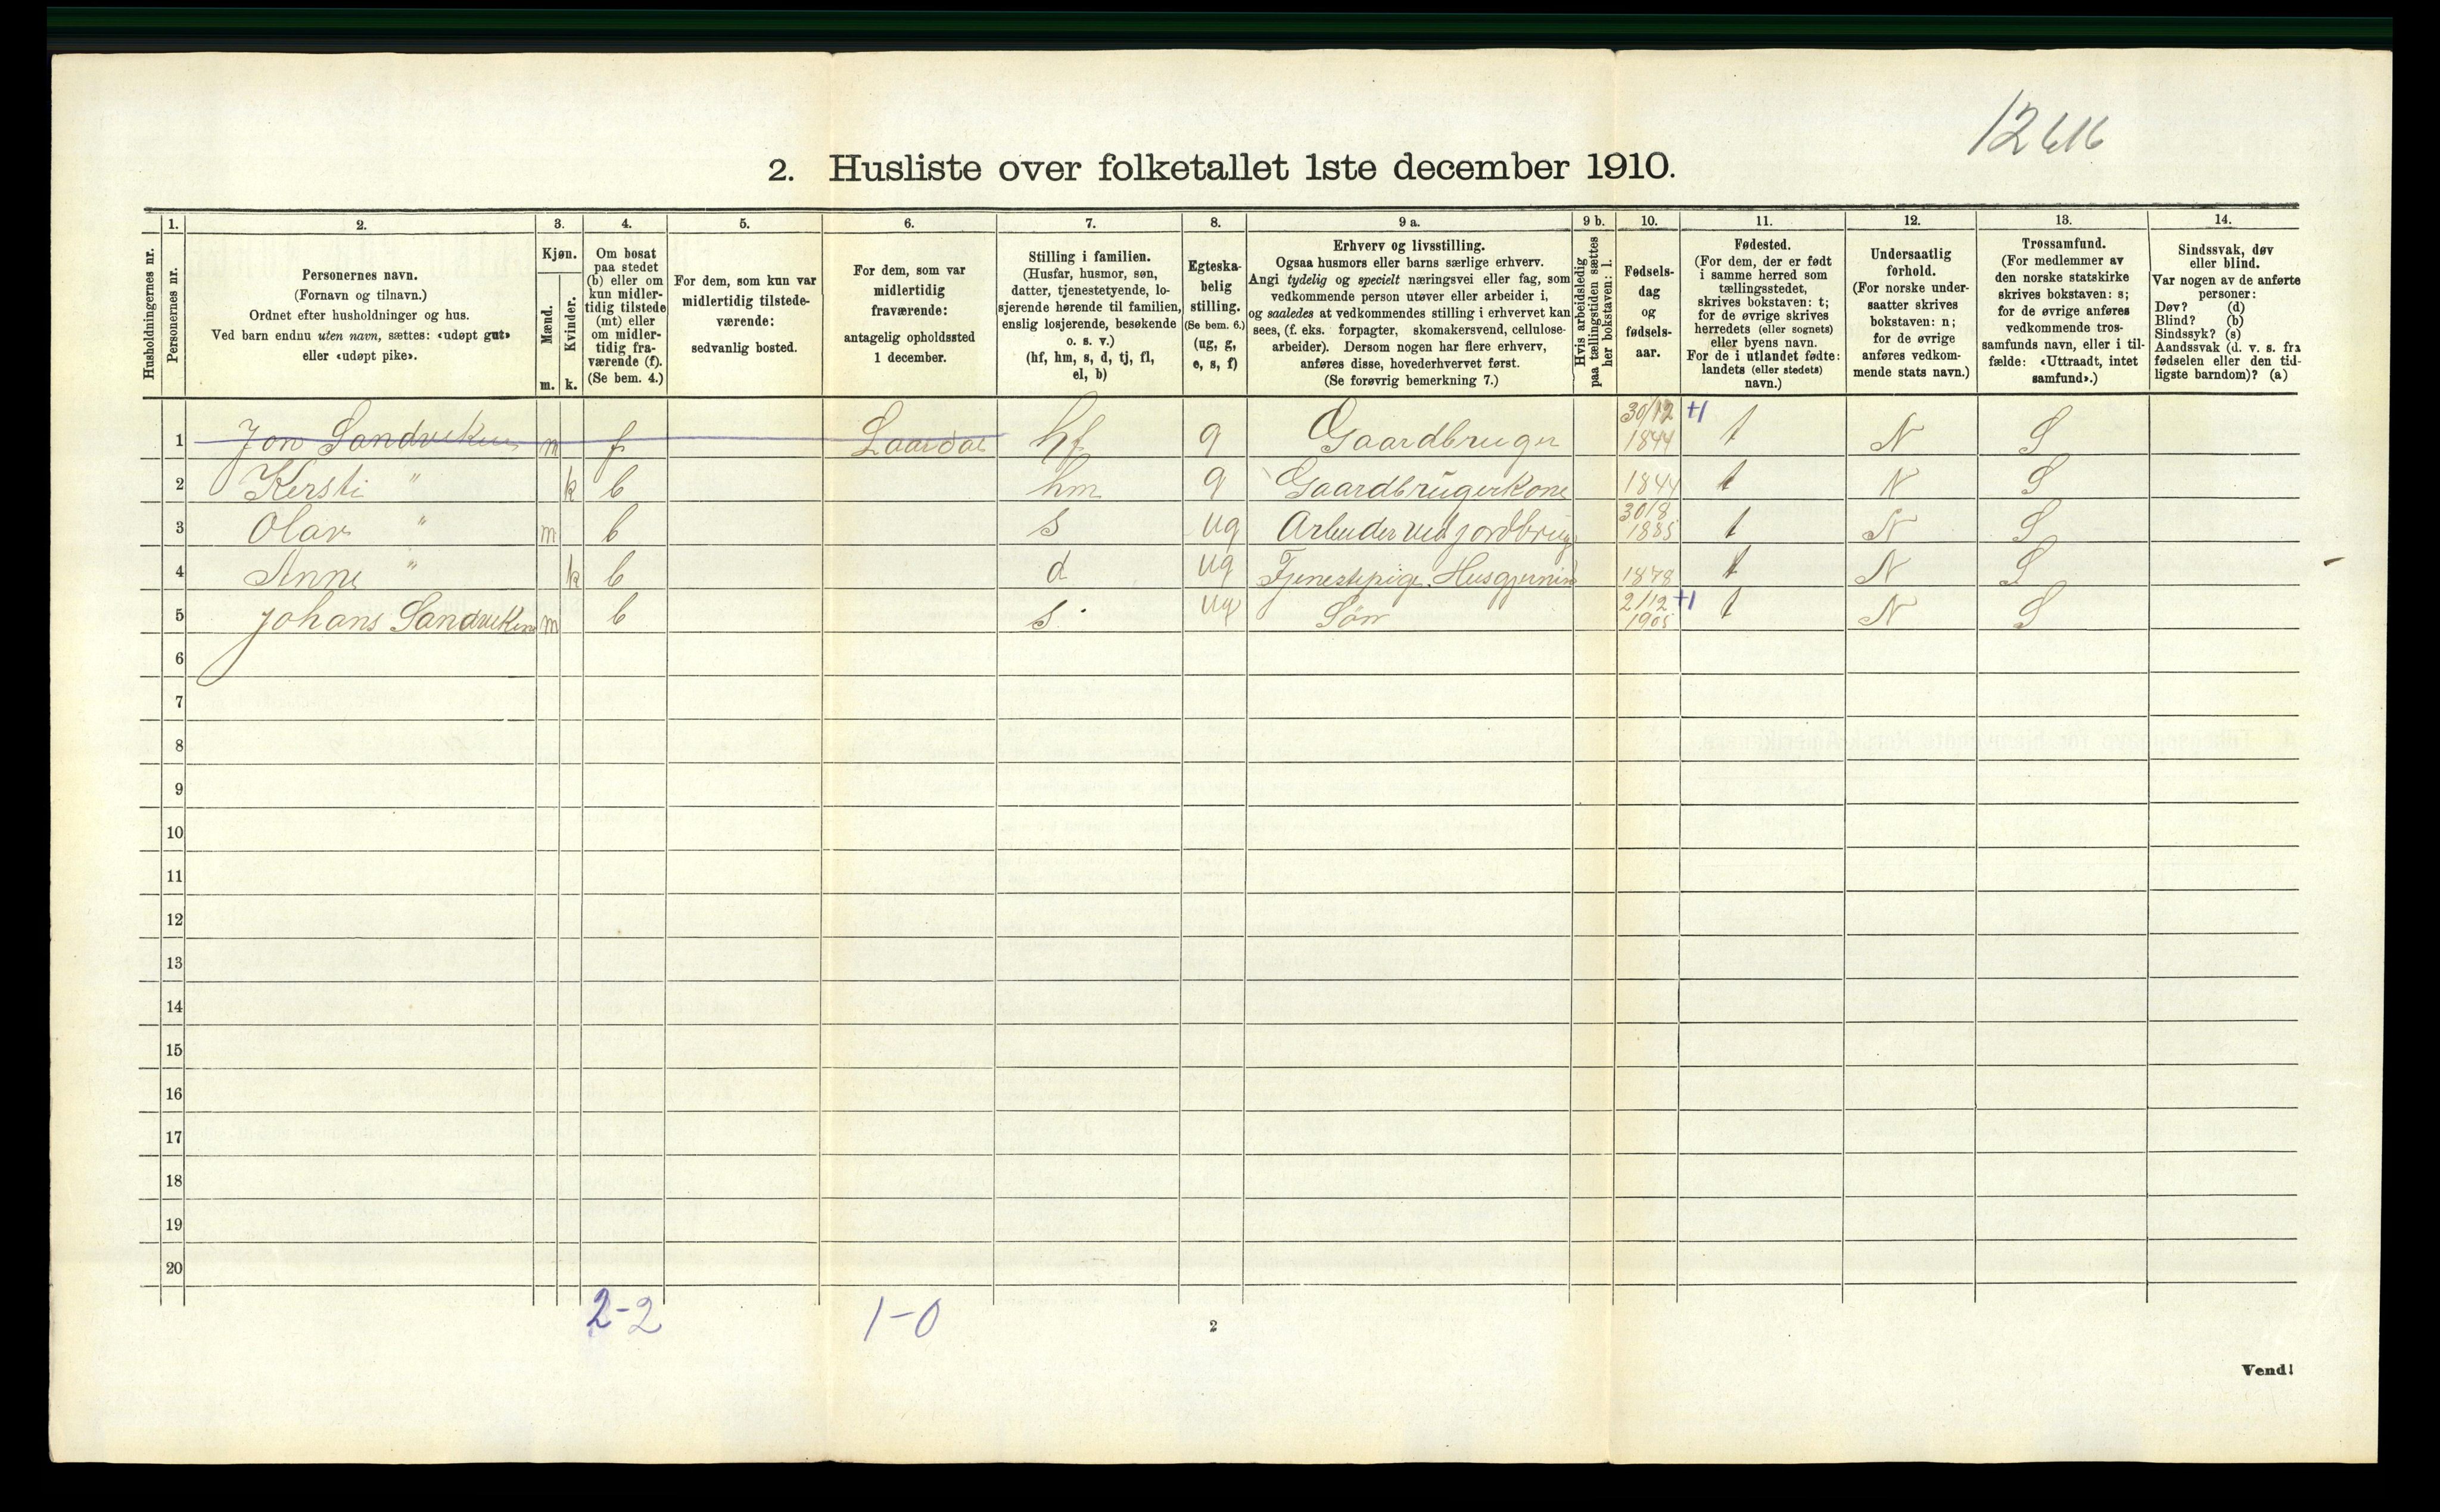 12616
2. Husliste over folketallet 1ste december 1910.
Husholdningernes nr.
1.
Personernes nr.
2.
Personernes navn.
(Fornavn og tilnavn.)
Ordnet efter husholdninger og hus.
Ved barn endnu uten navn, sættes: «udøpt gut»
eller «udøpt pike».
3.
Kjøn.
Mænd.
m.
Kvinder.
k.
4.
Om bosat
paa stedet
(b) eller om
kun midler-
tidig tilstede
(mt) eller
om midler-
tidig fra-
værende (f).
(Se bem. 4.)
5.
For dem, som kun var
midlertidig tilstede-
værende:
sedvanlig bosted.
6.
For dem, som var
midlertidig
fraværende:
antagelig opholdssted
1 december.
7.
Stilling i familien.
(Husfar, husmor, søn,
datter, tjenestetyende, lo-
sjerende hørende til familien,
enslig losjerende, besøkende
o. s. v.)
(hf, hm, s, d, tj, fl,
el, b)
8.
Egteska-
belig
stilling.
(Se bem. 6.)
(ug, g,
e, s, f)
9 a.
Erhverv og livsstilling.
Ogsaa husmors eller barns særlige erhverv.
Angi tydelig og specielt næringsvei eller fag, som
vedkommende person utøver eller arbeider i,
og saaledes at vedkommendes stilling i erhvervet kan
sees, (f. eks. forpagter, skomakersvend, cellulose-
arbeider). Dersom nogen har flere erhverv,
anføres disse, hovederhvervet først.
(Se forøvrig bemerkning 7.)
9 b.
Hvis arbeidsledig
paa tællingstiden sættes
her bokstaven: l.
10.
Fødsels-
dag
og
fødsels-
aar.
11.
Fødested.
(For dem, der er født
i samme herred som
tællingsstedet,
skrives bokstaven: t;
for de øvrige skrives
herredets (eller sognets)
eller byens navn.
For de i utlandet fødte:
landets (eller stedets)
navn.)
12.
Undersaatlig
forhold.
(For norske under-
saatter skrives
bokstaven: n;
for de øvrige
anføres vedkom-
mende stats navn.)
13.
Trossamfund.
(For medlemmer av
den norske statskirke
skrives bokstaven: s;
for de øvrige anføres
vedkommende tros-
samfunds navn, eller i til-
fælde: «Uttraadt, intet
samfund».)
14.
Sindssvak, døv
eller blind.
Var nogen av de anførte
personer:
Døv? (d)
Blind? (b)
Sindssyk? (s)
Aandssvak (d. v. s. fra
fødselen eller den tid-
ligste barndom)? (a)
1 Jon Sandviken m f Laardal hf g Gaardbruger 30/12 1844 +1 t N S
2 Kersti " k b hm g Gaardbrugerkone 1844 t N S
3 Olav " m b s ug Arbeider ved jordbrug 30/8 1885 t N S
4 Anne " k b d ug Tjenestepige. Husgjerning 1878 t N S
5 Johans Sandviken m b s. ug Søn 2/12 1905 +1 t N S
6
7
8
9
10
11
12
13
14
15
16
17
18
19
20
2-2 1-0
2
Vend!